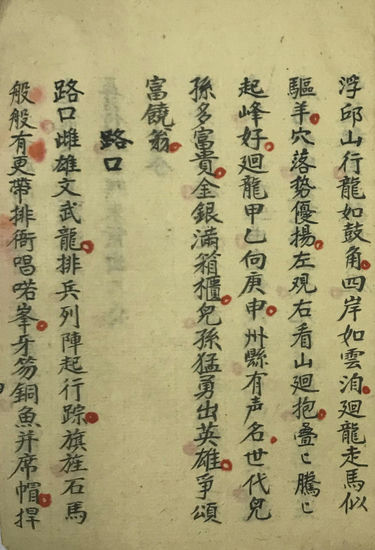 浮邱山行龍如鼓角四岸如雲泊廻龍走馬似
驅羊穴落势優揚左观右看山廻抱叠〻騰〻
起峰好廻龍甲乙向庚申州縣有声名世代兒
孫多富貴金銀滿箱櫃兒孫猛勇出英雄爭頌
富饒翁
路口
路口雌雄文武龍排兵列陣起行踪旗旌石馬
般般有更帶排衙唱喏峯牙笏銅魚并席帽捍